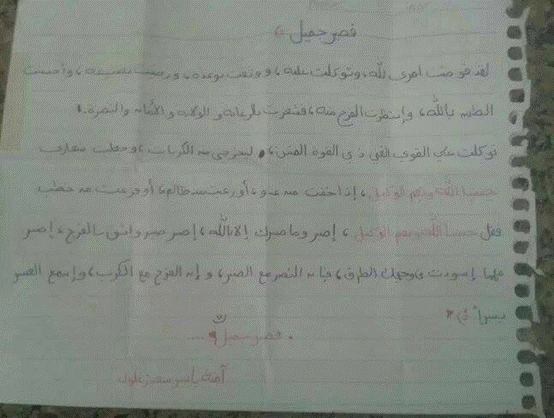 فصبر جميل
لقد فوضت أمري لله، وتوكلت عليه، ووثقت بوعده، ورضيت بنصيبه، وأحسنت
الظن بالله، وإنتظرت الفرج منه، فشعرت بالرعاية و الولاية والأمان والنصرة.
توكلت على القوي القي ذي القوة المتين، ليخرجني من الكربات،
حسبنا الله ونعم الوكيل، إذا خفت من عدو، أو رعبت من ظالم، أو فزعت من خطب
فقل حسبنا الله ونعم الوكيل، إصبر وما صبرك إلا بالله، إصبر صبر واثق بالفرج، إصبر
مهما إسودت في وجهك الطرق، فإن النصر مع الصبر، و إن الفرج مع الكرب، وإن مع العسر
يسراً
فصبر جميل ....
آمنة ياسر